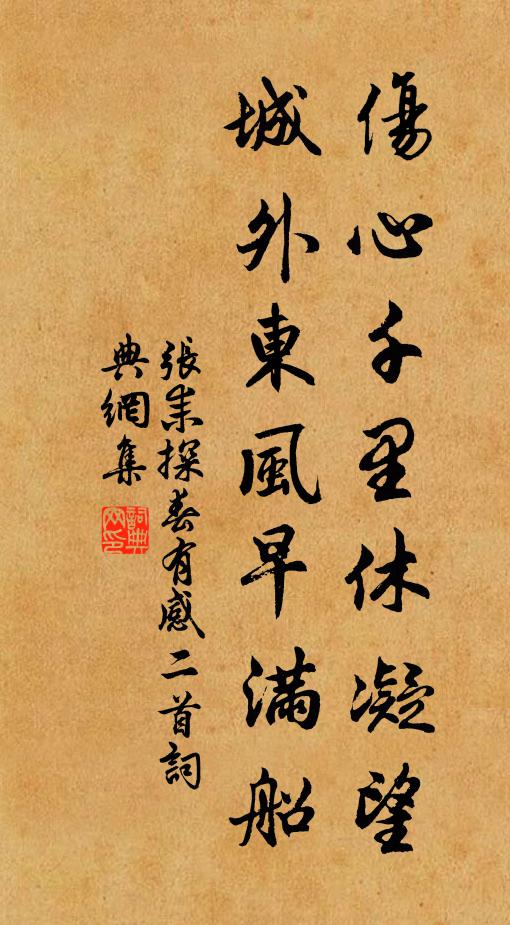 傷心千里休凝望
城外東風早滿船
張耒探春有感二首詞
典網集
詞典網印